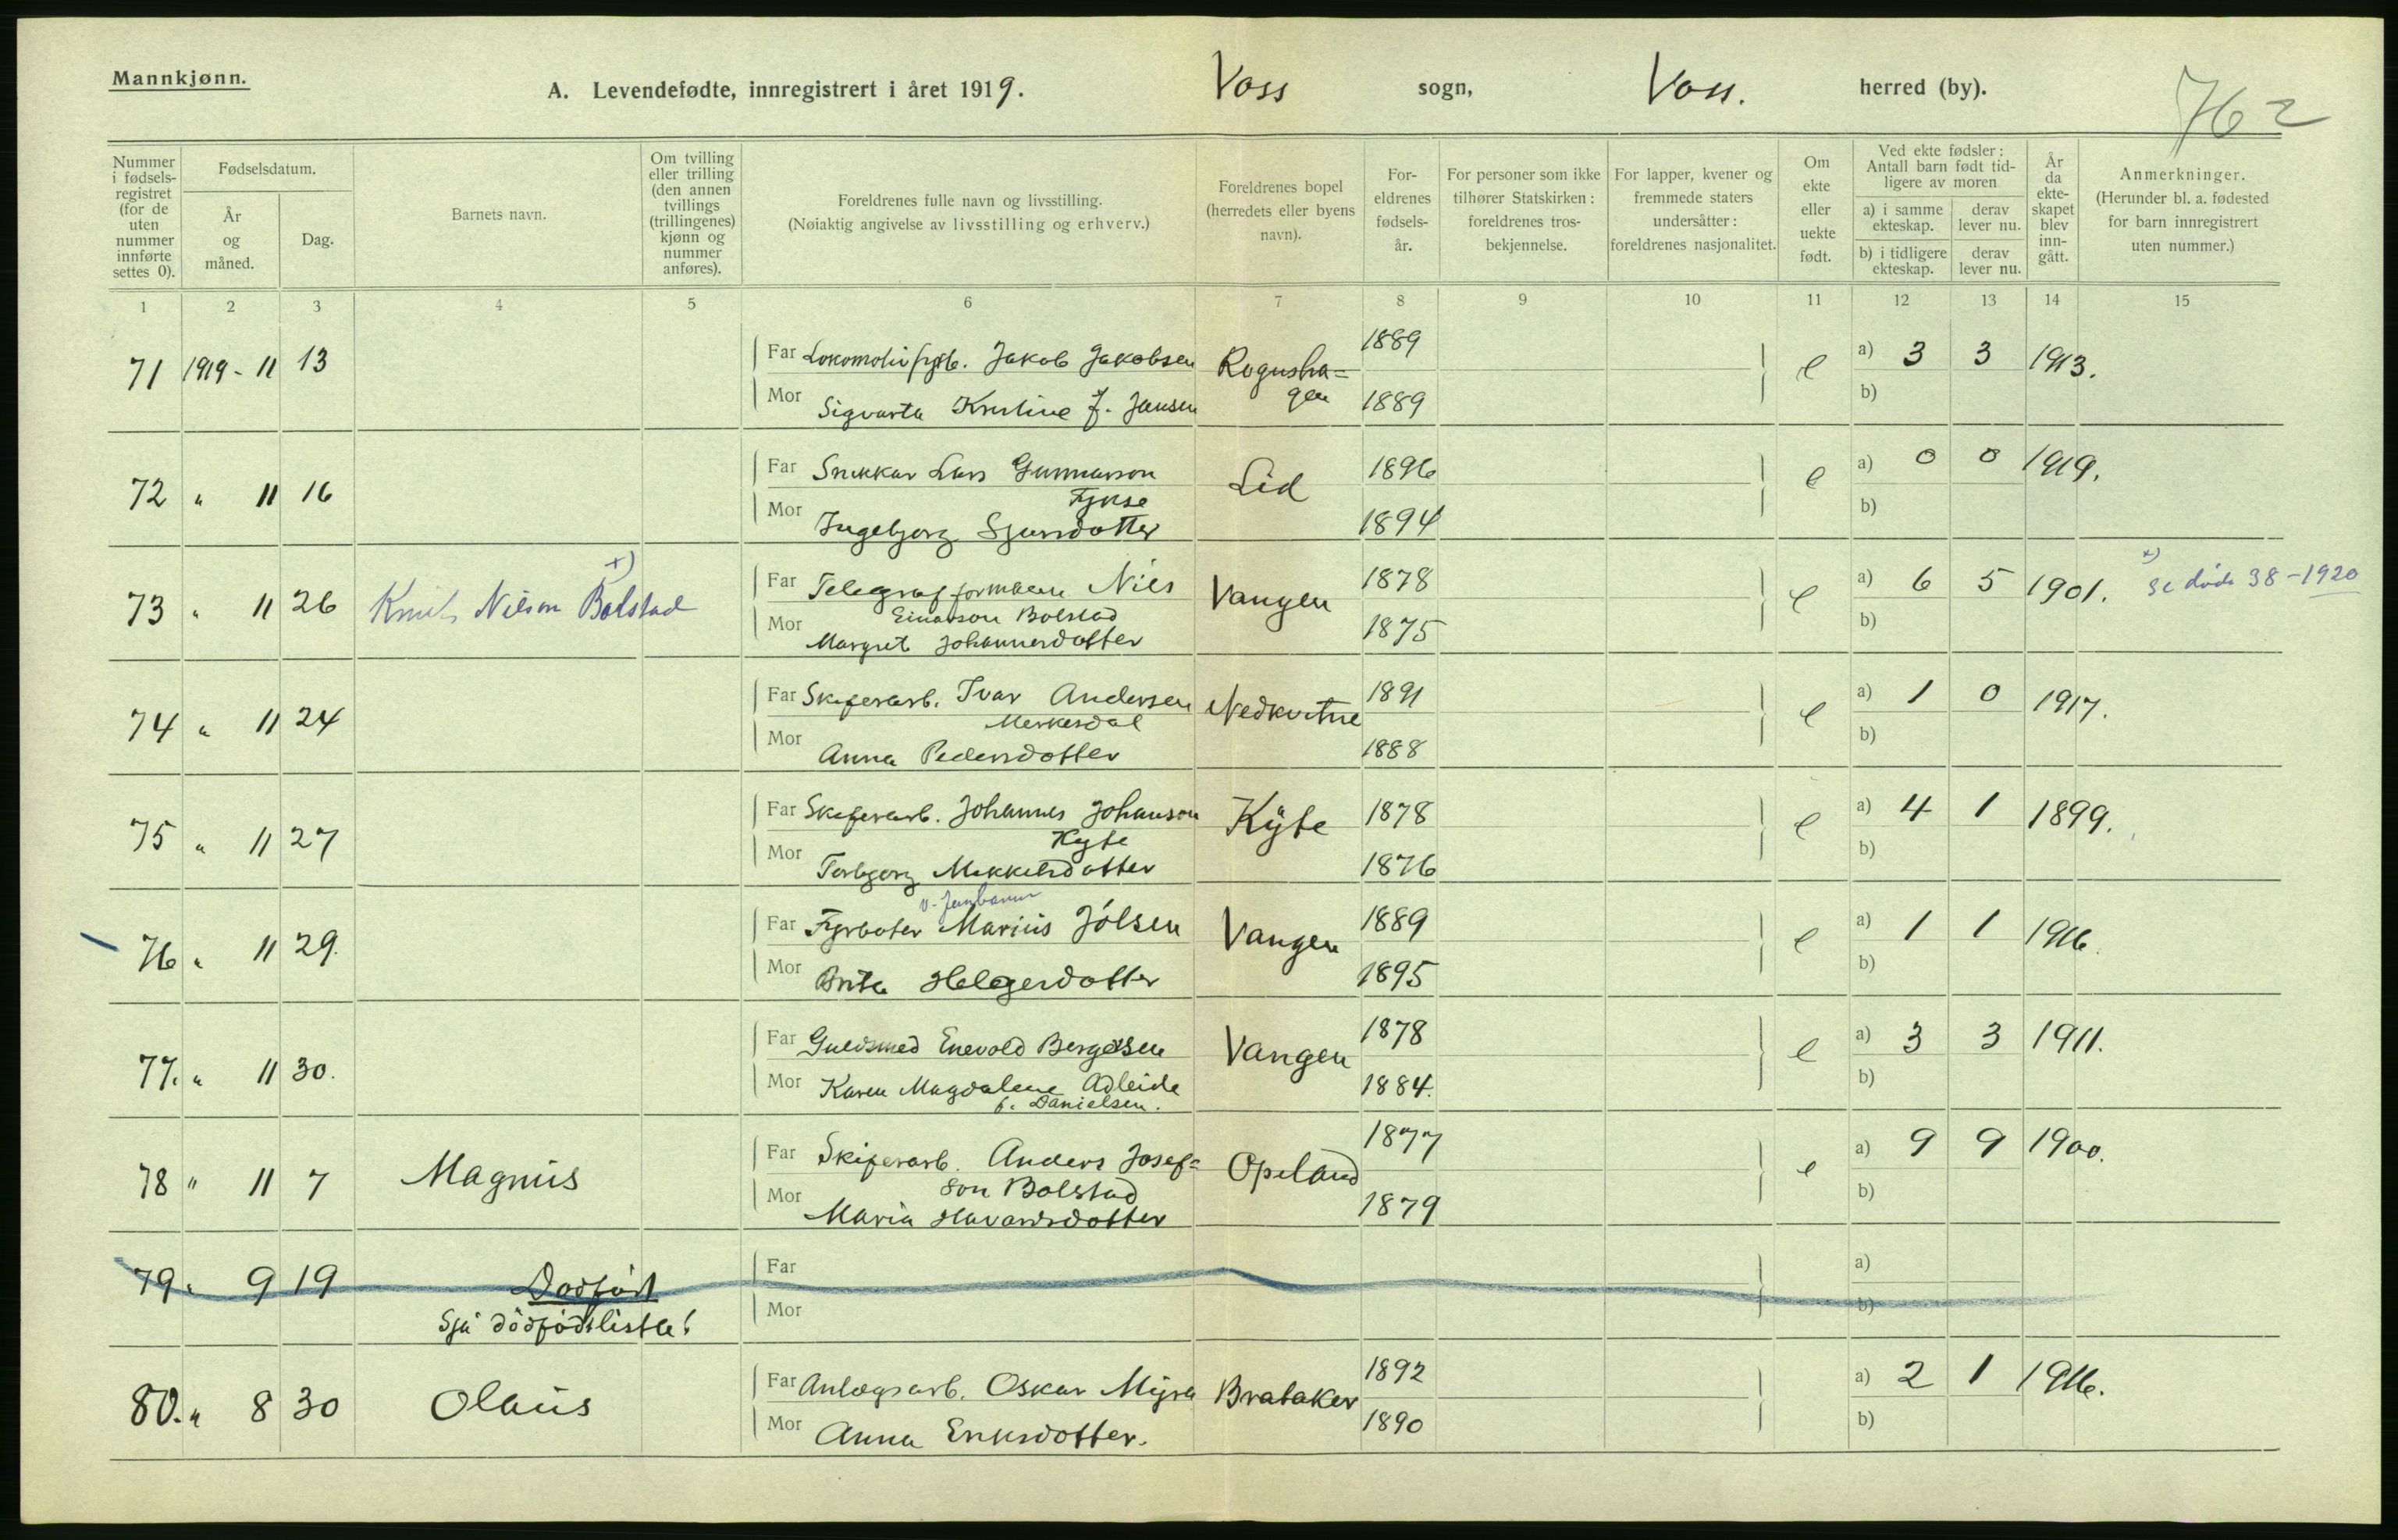 Mannkjønn.
A. Levendefødte, innregistrert i året 1919.
Voss sogn, Voss. herred (by).
762
Nummer i fødsels-registret (for de uten nummer innførte settes 0).
Fødselsdatum.
År og måned.
Dag.
Barnets navn.
Om tvilling eller trilling (den annen tvillings (trillingenes) kjønn og nummer anføres).
Foreldrenes fulle navn og livsstilling.
(Nøiaktig angivelse av livsstilling og erhverv.)
Foreldrenes bopel (herredets eller byens navn).
For-eldrenes fødsels-år.
For personer som ikke tilhører Statskirken: foreldrenes tros-bekjennelse.
For lapper, kvener og fremmede staters undersåtter: foreldrenes nasjonalitet.
Om ekte eller uekte født.
Ved ekte fødsler: Antall barn født tid-ligere av moren
a) i samme ekteskap.
derav lever nu.
b) i tidligere ekteskap.
derav lever nu.
År da ekte-skapet blev inn-gått.
Anmerkninger.
(Herunder bl. a. fødested for barn innregistrert uten nummer.)
1 2 3 4 5 6 7 8 9 10 11 12 13 14 15
71 1919 - 11 13 Far Lokomotivfyrb. Jakob Jakobsen Rogusha= 1889 e a) 3 3 1913.
Mor Sigvarta Kristine f. Jansen gen 1889 b)
72 " 11 16 Far Snikkar Lars Gunnarson Lid 1896 e a) 0 0 1919.
Fykse
Mor Ingebjorg Sjursdotter 1894 b)
73 " 11 26 Knut Nilson Bolstad x) Far Telegrafformann Nils Vangen 1878 e a) 6 5 1901. x) se døde 38-1920
Einarson Bolstad
Mor Margret Johannesdotter 1875 b)
74 " 11 24 Far Skiferarb. Ivar Andersen Nedkvitne 1891 e a) 1 0 1917.
Merkesdal
Mor Anna Pedersdotter 1888 b)
75 " 11 27 Far Skiferarb. Johannes Johanson Kyte 1878 e a) 4 1 1899.
Kyte
Mor Torbjorg Mikkelsdotter 1876 b)
v. Jernbanen
76 " 11 29. Far Fyrboter Marius Jólsen Vangen 1889 e a) 1 1 1916.
Mor Brita Helgesdotter 1895 b)
77. " 11 30. Far Guldsmed Enevold Bergersen Vangen 1878 e a) 3 3 1911.
Mor Karen Magdalene Adleide 1884. b)
f. Danielsen.
78 " 11 7 Magnus Far Skiferarb. Anders Josef= Opeland 1877 e a) 9 9 1900.
son Bolstad
Mor Maria Havardsdotter 1879 b)
79 " 9 19 Dodfodt Far a)
Sjå dödfödtlista! Mor b)
80. " 8 30 Olaus Far Anlægsarb. Oskar Myra Brataker 1892 a) 2 1 1916.
Mor Anna Eriksdotter. 1890 b)